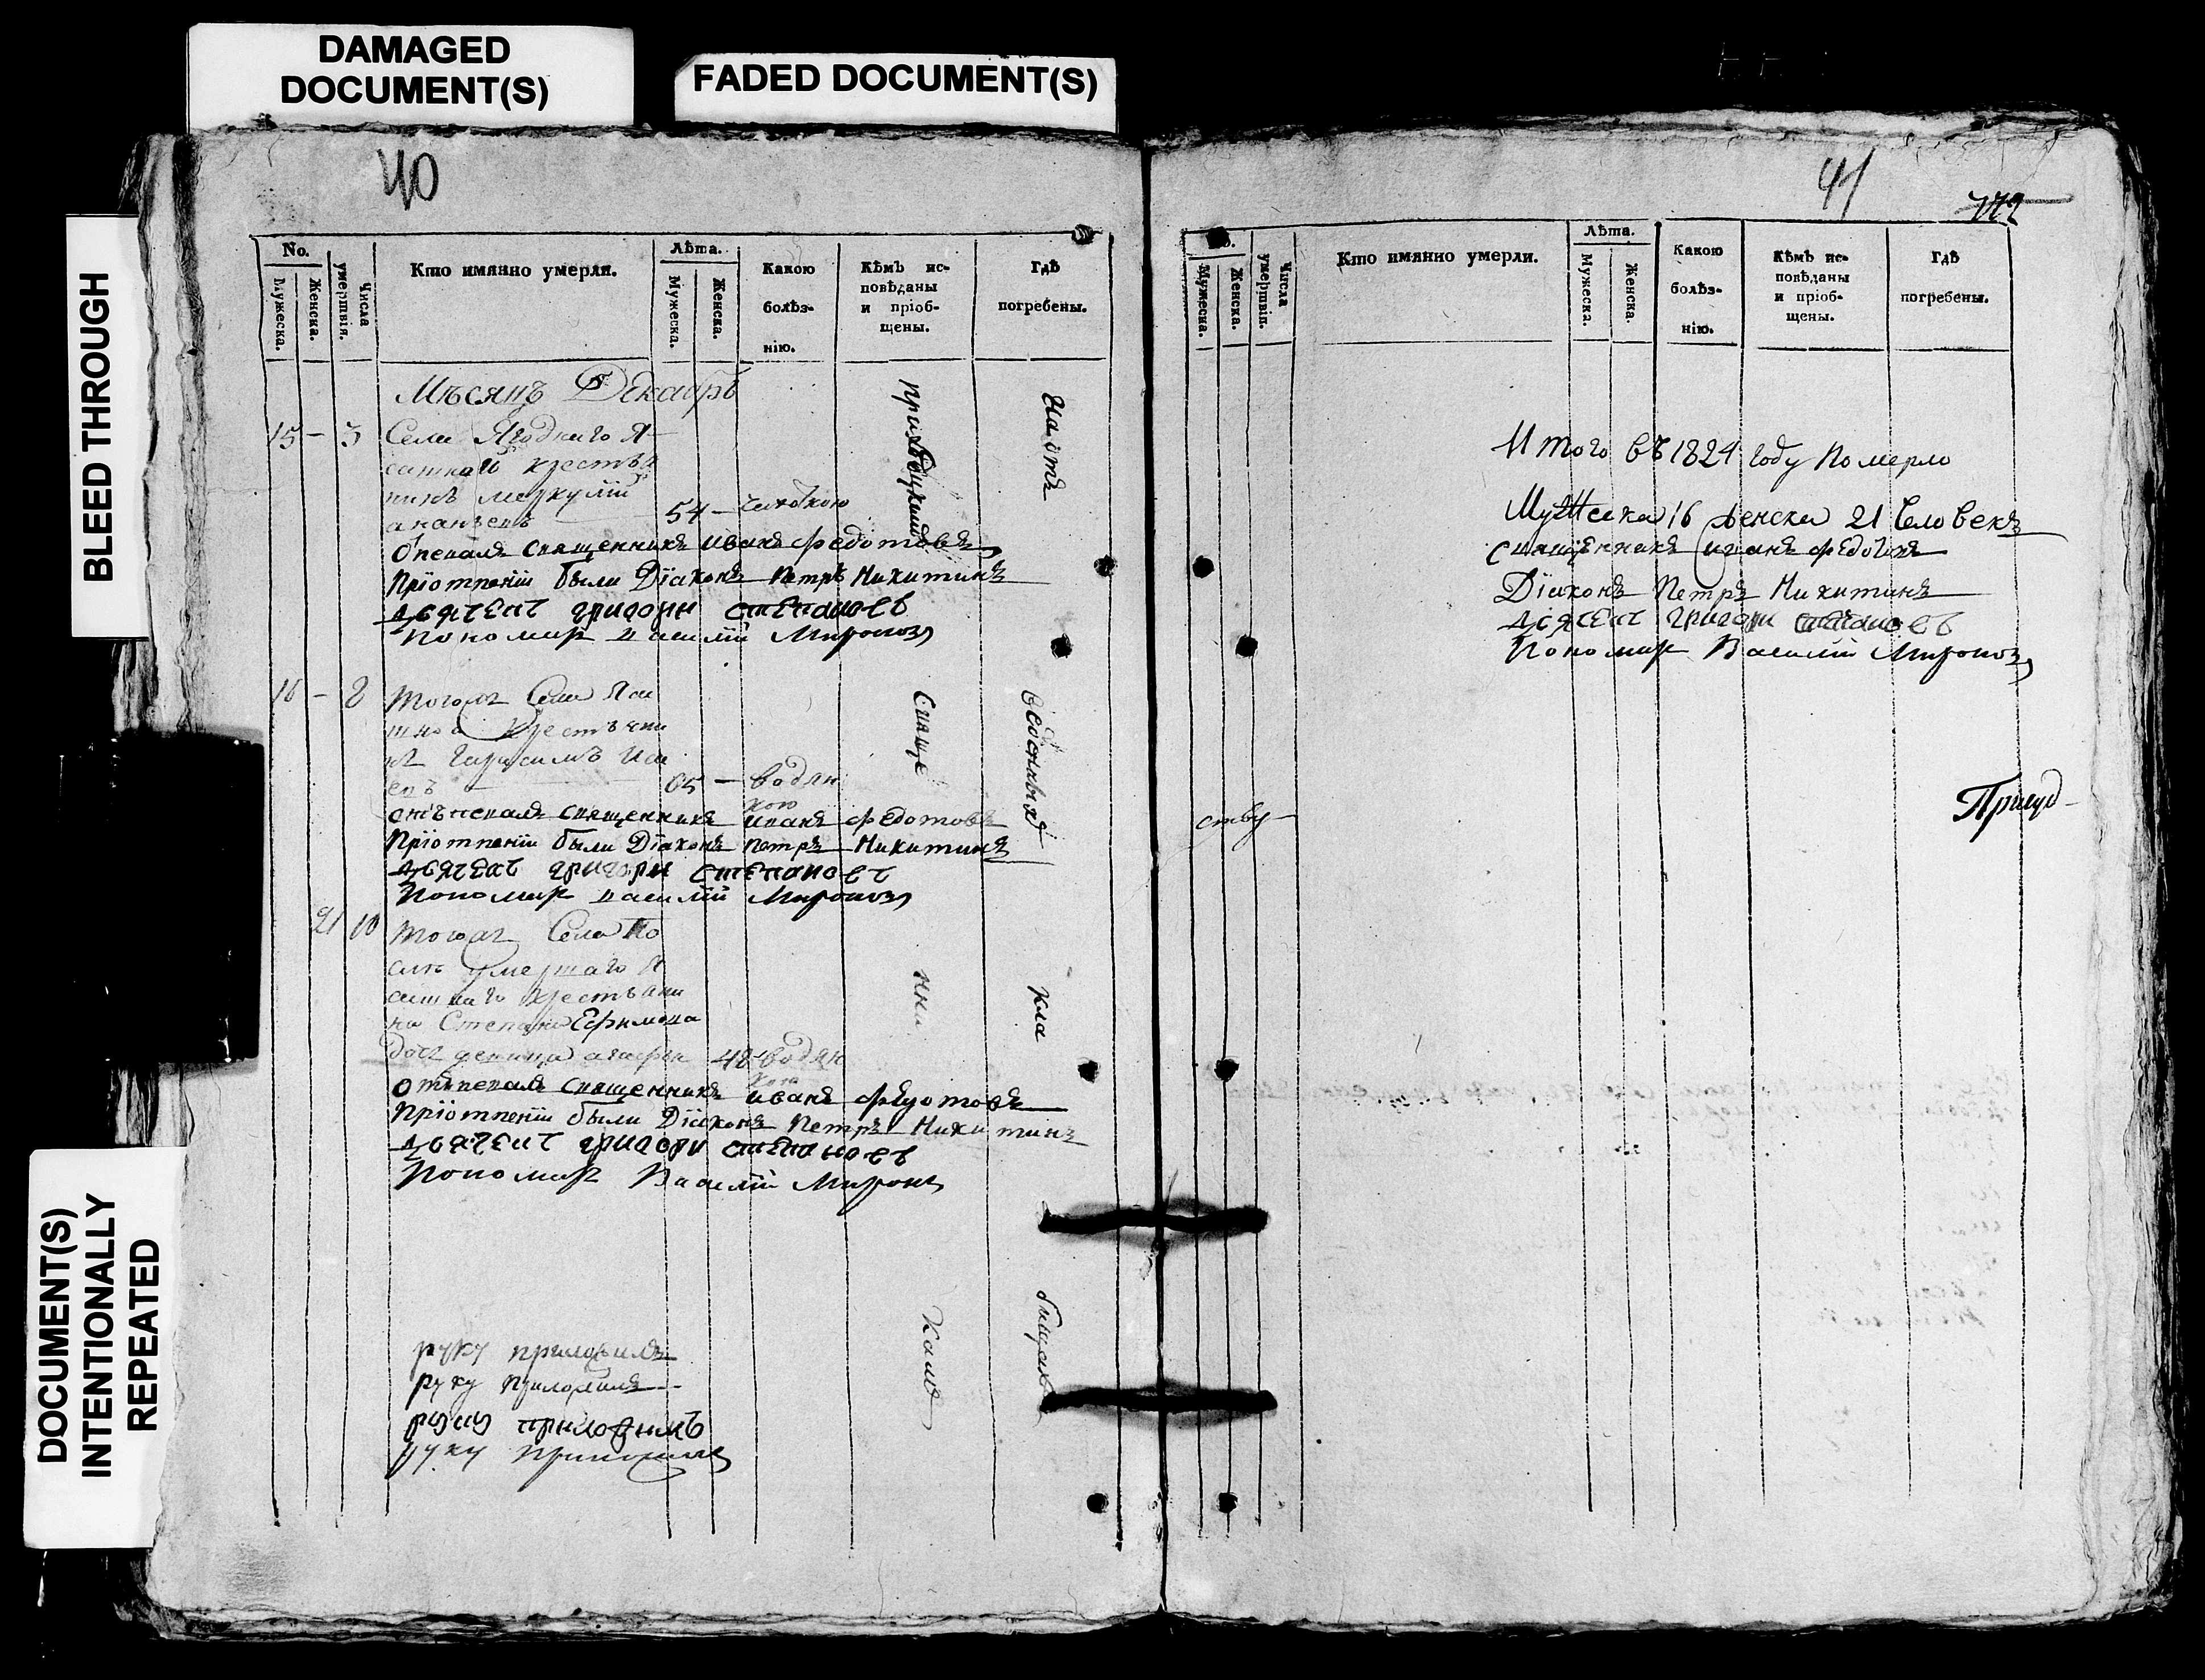 DAMAGED
DOCUMENT(S)
FADED DOCUMENT(S)
BLEED THROUGH
DOCUMENT(S)
INTENTIONALLY
REPEATED
40
No.
Мужеска.
Женска.
Числа
умертвія.
Кто имянно умерли.
Лѣта.
Мужеска.
Женска.
Какою
болѣз-
нію.
Кѣмъ ис-
повѣданы
и пріоб-
щены.
Гдѣ
погребены.
Мѣсяцъ Декабрь
15 - 3 Села Ягоднаго Я-
сашнаго крестья
нинъ меркулій
ананьевъ 54 - чихоткою
Опевалъ священникъ иванъ федотовъ
Приотпенiи были Дїаконъ Петръ Никитинъ
дсячецъ григори степановъ
Пономарь васили Мироновъ
16 - 8 тогожъ Села Яса
шной крестьяни
нъ Герасимъ Иса
евъ 65 - водян
кою
отъпевалъ священникъ иванъ федотовъ
Приотпенiи были Дїаконъ петръ Никитинъ
дсячецъ григори степановъ
Пономарь васили Мироновъ
21 10 тогожъ Села По
слѣ умершаго Я
сашнаго крестьяни
на Степана Ефимова
вдова агафья 48 водян
кою
отъпевалъ священникъ иванъ федотовъ
Приотпенiи были Дїаконъ Петръ Никитинъ
дсячецъ григори степановъ
Пономарь Васили Миронъ
приходскимъ
Свяще
нни
комъ
На отъ
веденныхъ
кла
бищахъ
руку приложилъ
руку приложилъ
руку приложилъ
руку приложилъ
41
No.
Мужеска.
Женска.
Числа
умертвіи.
Кто имянно умерли.
Лѣта.
Мужеска.
Женска.
Какою
болѣз-
нію.
Кѣмъ ис-
повѣданы
и пріоб-
щены.
Гдѣ
погребены.
Итого въ 1824 году Померло
Мужеска 16 женска 21 Человекъ
священникъ иванъ федотовъ
Дїаконъ Петръ Никитинъ
дсячецъ григори степановъ
Пономарь Васили Мироновъ
ству